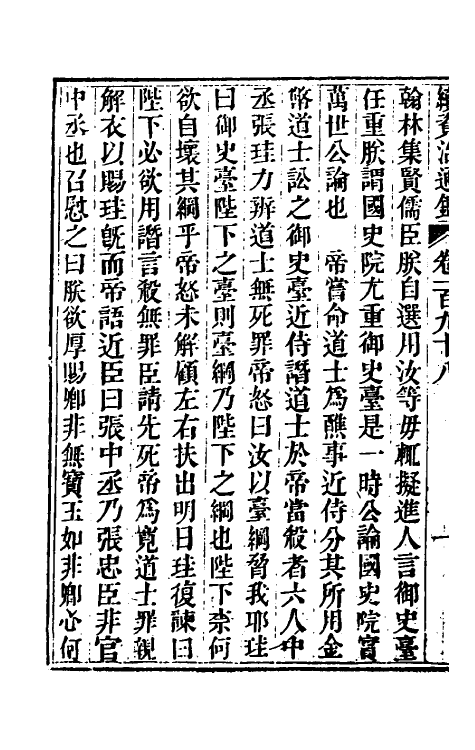 續資治通鑑 卷一百九十八 一
翰林集賢儒臣朕自選用汝等毋輒擬進人言御史臺
任重朕謂國史院尤重御史臺是一時公論國史院實
萬世公論也　帝嘗命道士爲醮事近侍分其所用金
幣道士訟之御史臺近侍譖道士於帝當殺者六人中
丞張珪力辨道士無死罪帝怒曰汝以臺綱脅我耶珪
曰御史臺陛下之臺則臺綱乃陛下之綱也陛下柰何
欲自壞其綱乎帝怒未解顧左右扶出明日珪復諫曰
陛下必欲用譖言殺無罪臣請先死帝爲寬道士罪親
解衣以賜珪旣而帝語近臣曰張中丞乃張忠臣非官
中丞也召慰之曰朕欲厚賜卿非無寶玉如非卿心何